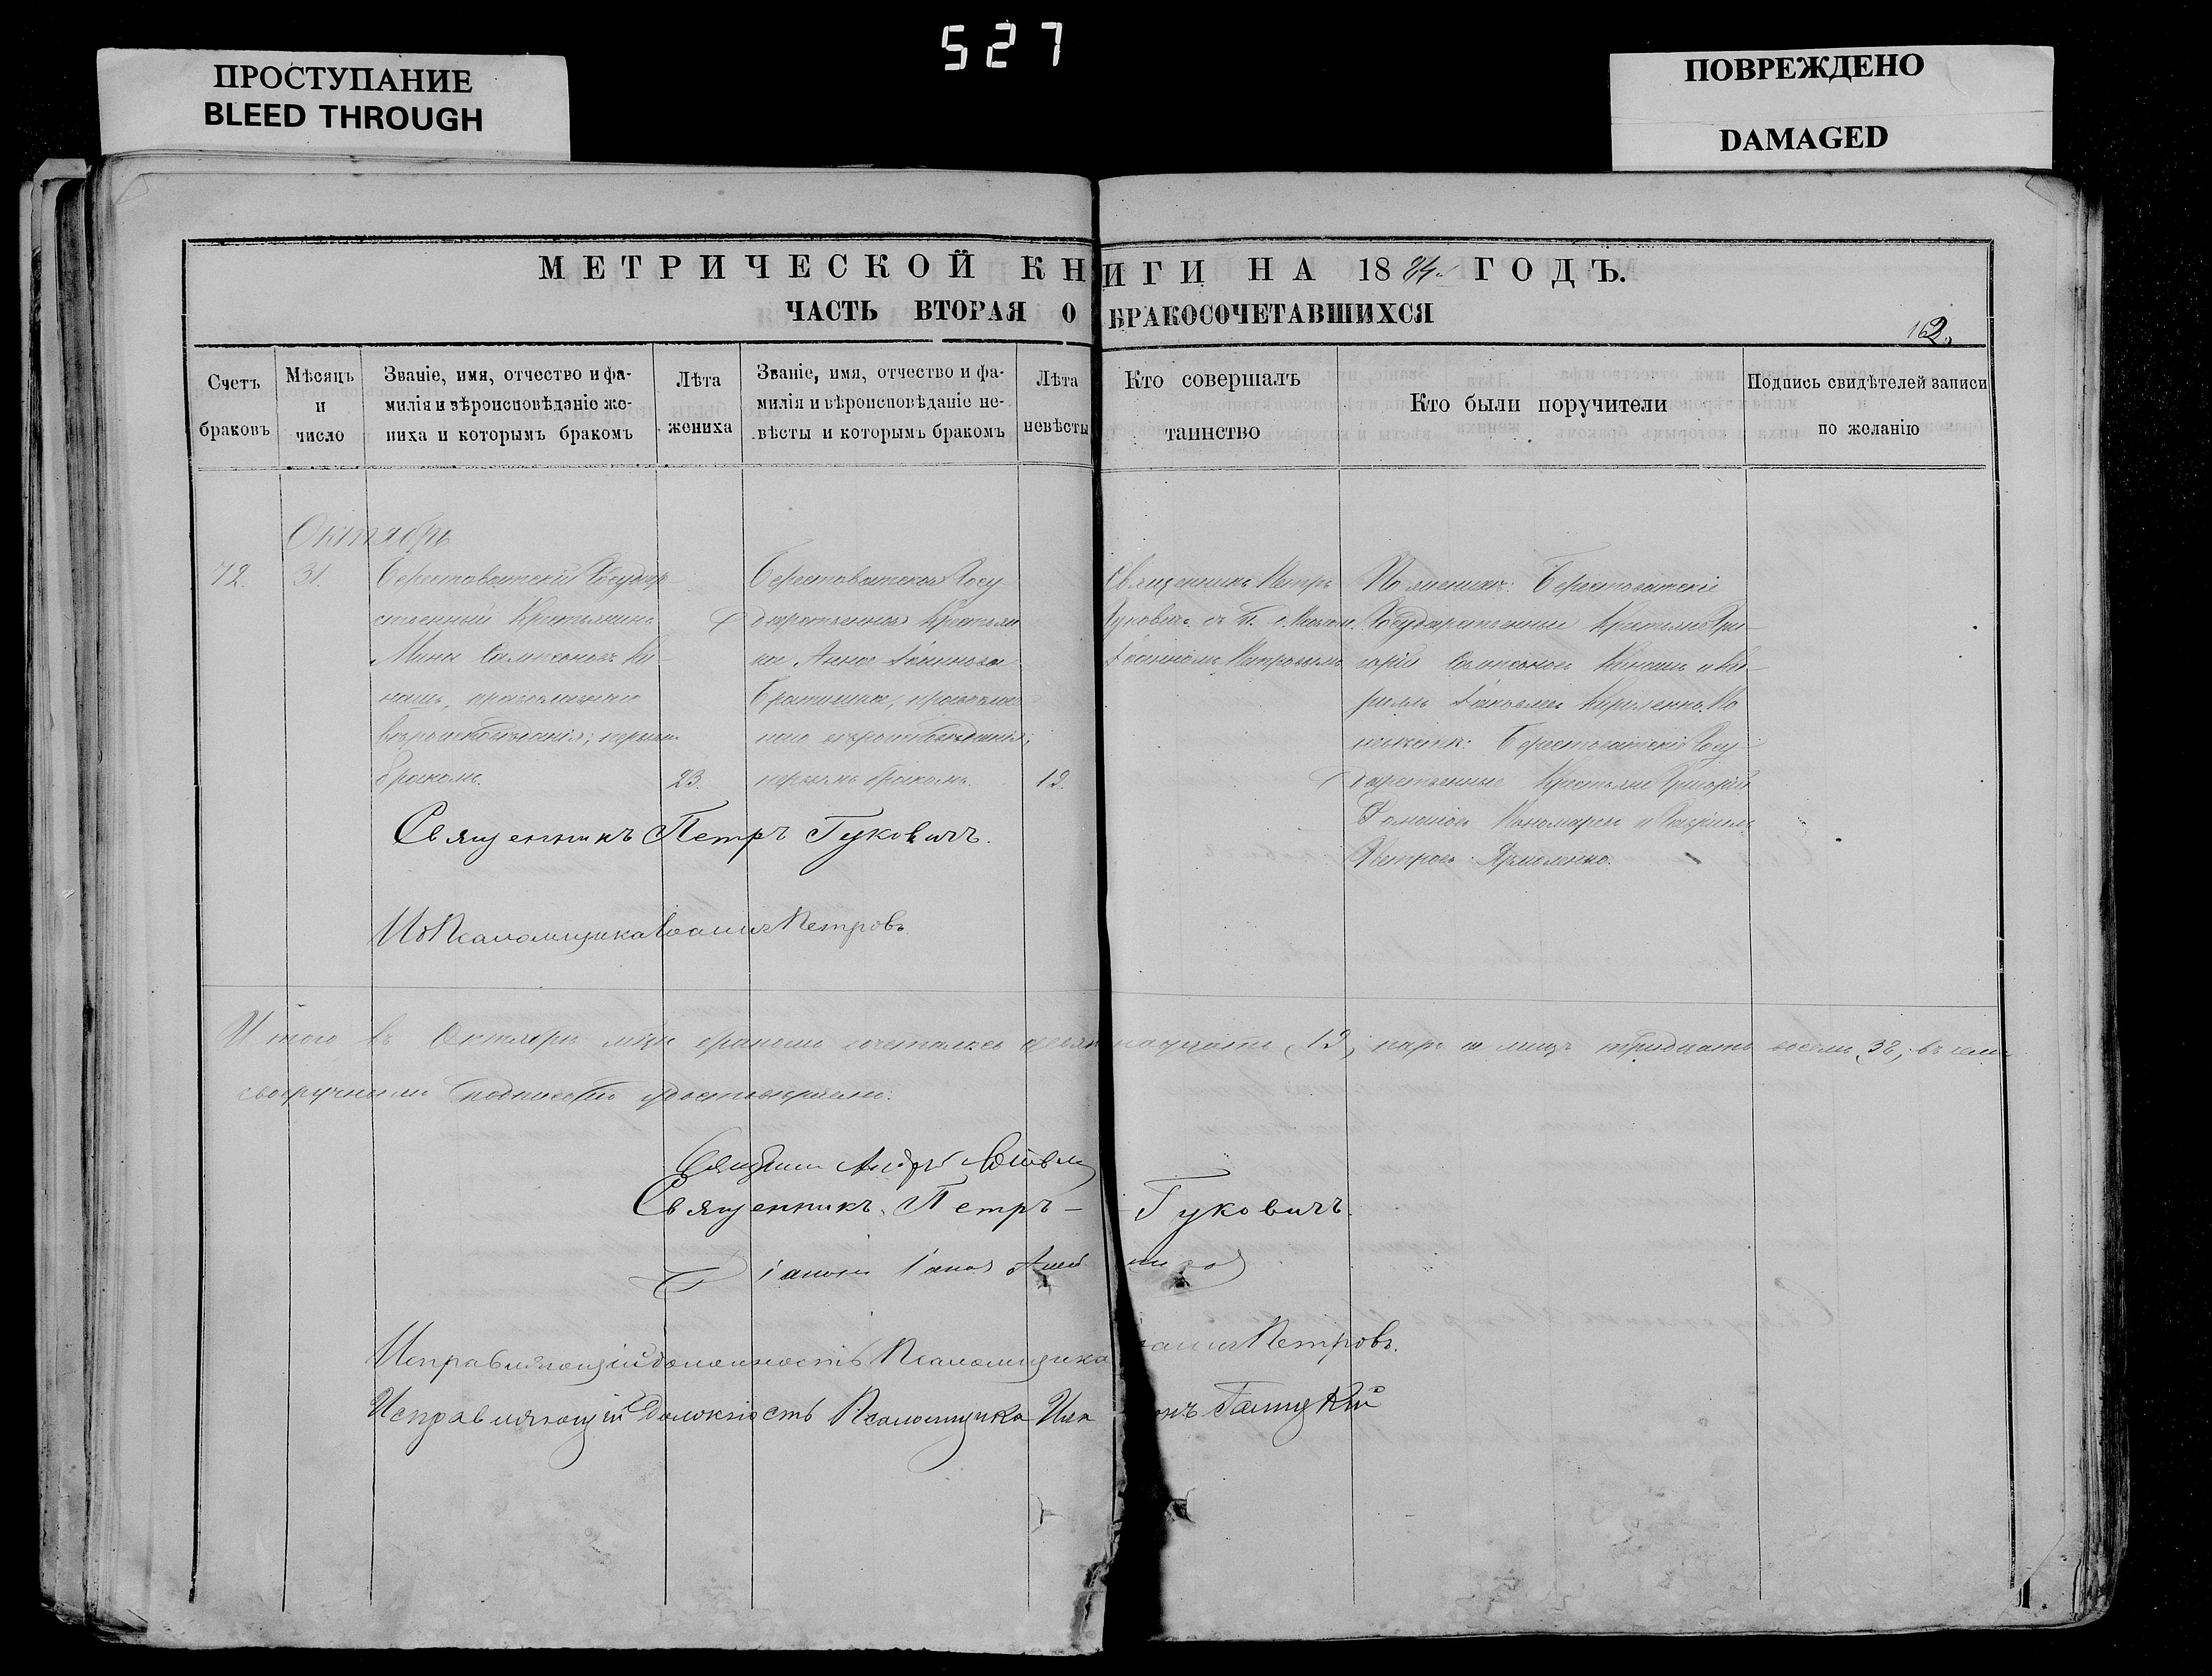 527
ПРОСТУПАНИЕ
BLEED THROUGH
ПОВРЕЖДЕНО
DAMAGED
МЕТРИЧЕСКОЙ КНИГИ НА 1884 ГОДЪ.
ЧАСТЬ ВТОРАЯ О БРАКОСОЧЕТАВШИХСЯ
162.
Счетъ
браковъ
Мѣсяцъ
и
число
Званіе, имя, отчество и фа-
милія и вѣроисповѣданіе же-
ниха и которымъ бракомъ
Лѣта
жениха
Званіе, имя, отчество и фа-
милія и вѣроисповѣданіе не-
вѣсты и которымъ бракомъ
Лѣта
невѣсты
Кто совершалъ
таинство
Кто были поручители
Подпись свидѣтелей записи
по желанію
Октябрь
72.
31.
Берестоватскій Государ
ственный Крестьянинъ
Мина Сампсоновъ Ки-
нашъ, православнаго
вѣроисповѣданія; первымъ
бракомъ.
23.
Берестоватская Госу
дарственная Крестьян
ка Анна Іоаннова
православ
наго вѣроисповѣданія;
первымъ бракомъ.
19.
Священникъ Петръ
Гуковичъ съ
Іоанномъ Петровымъ
По женихѣ: Берестоватскіе
Государственные Крестьяне Гри-
горій Сампсоновъ Кинашъ и Ки-
риллъ Іаковлевъ Кириленко. По
невѣстѣ: Берестоватскіе Госу
дарственные Крестьяне Григорій
Пономаревъ и Гавріилъ
Петровъ Ярмоленко.
Священникъ Петръ Гуковичъ.
И д Псаломщика Іоаннъ Петровъ
Итого въ Октябрѣ м-цѣ бракомъ сочеталось девятнадцать, 19, паръ а лицъ тридцать восемь, 38, въ чемъ
своеручными подписьми удостовѣряемъ:
Священникъ Андрей
Священникъ Петръ Гуковичъ.
Діаконъ
Исправляющій должность Псаломщика Іоаннъ Петровъ.
Исправляющій должность Псаломщика Галицкій